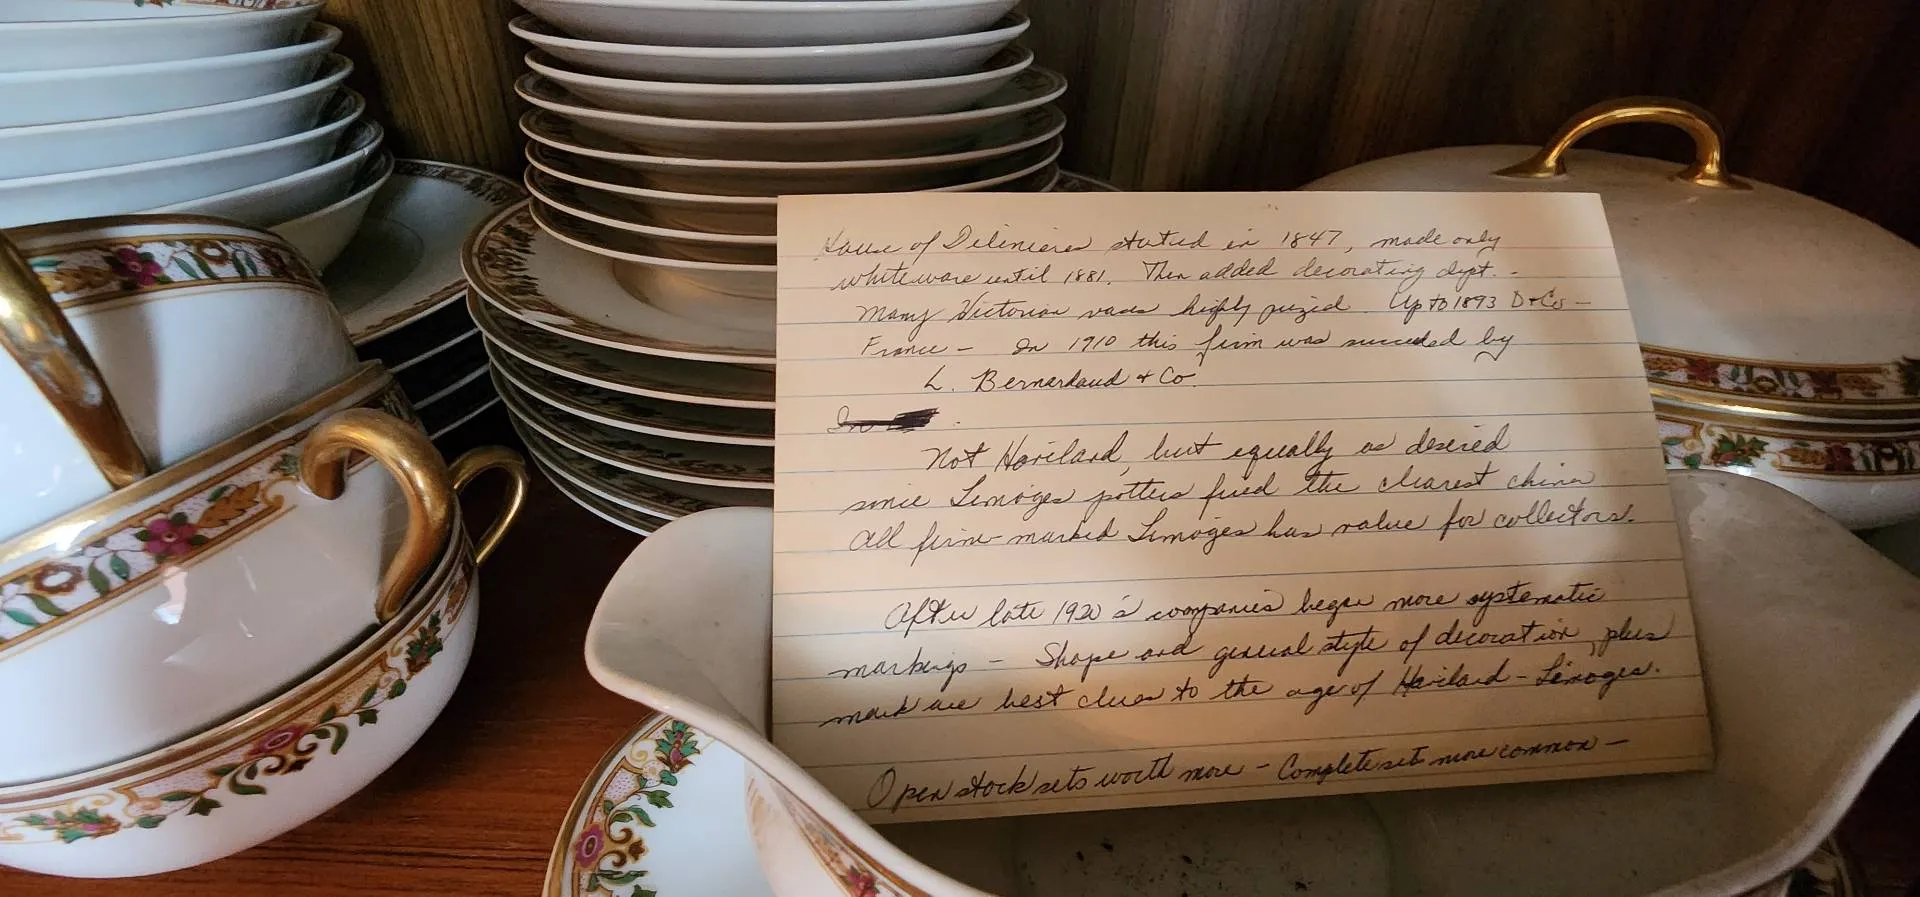 House of Delinieres started in 1847, made only
whiteware until 1881. Then added decorating dept. -
Many Victorian vases highly prized. Up to 1893 D+Co -
France - In 1910 this firm was succeeded by
L. Bernardaud + Co.
In
Not Haviland, but equally as desired
since Limoges potters fired the clearest china
All firm-marked Limoges has value for collectors.
After late 1920's companies began more systematic
markings - Shape and general style of decoration, plus
mark are best clues to the age of Haviland - Limoges.
Open stock sets worth more - Complete sets more common -